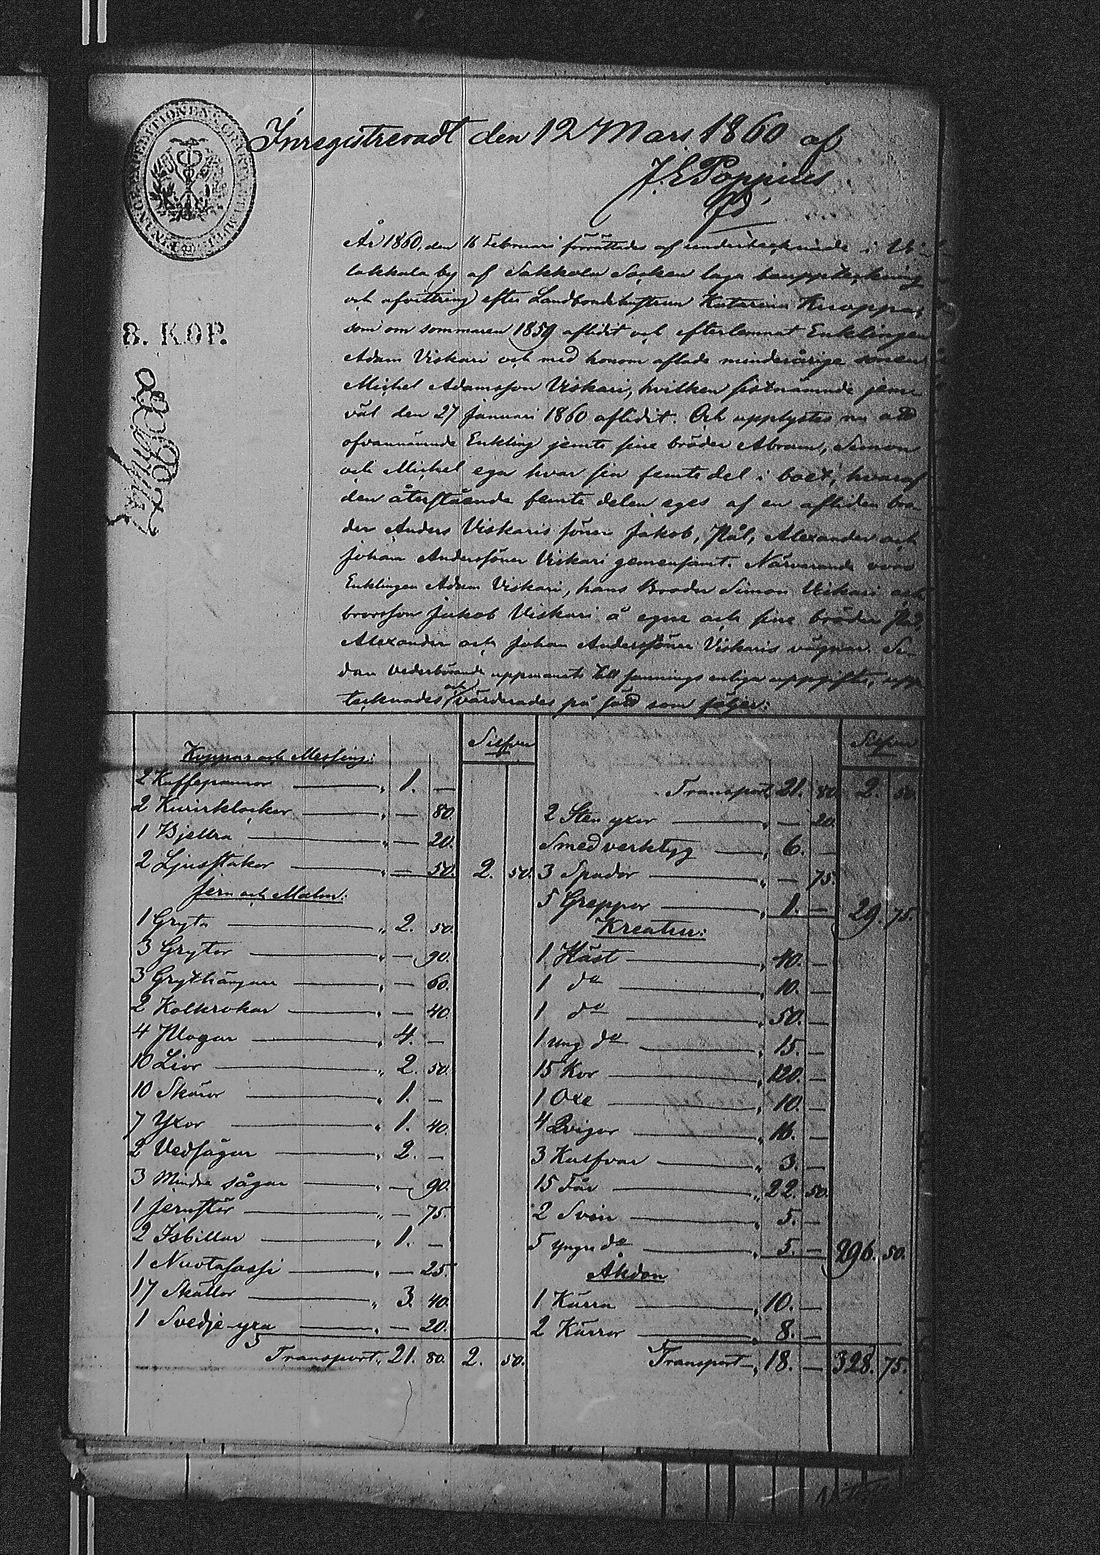 Inregistreradt den 12 Mars 1860 af
J. E. Poppius
8. KOP.
År 1860, den 16 Februari förrättades af undertecknade i
lakkala by af Sakkola Socken laga bouppteckning
och afvittring efter Landbondehustrun Katarina Kuoppa,
som om sommaren 1859 aflidit och efterlemnat Enklingen
Adam Viskari och med honom aflade minderårige sonen
Michel Adamsson Viskari, hvilken sistnämnde jemn
väl den 27 Januari 1860 aflidit. Och upplystes nu att
ofvannämnde Enkling jemte sine bröder Abram, Simon
och Michel ega hvar sin femtedel i boet, hvaraf
den återstående femte delen eges af en afliden bro
der Anders Viskaris söner Jakob, Pål, Alexander och
Johan Anderssöner Viskari gemensamt. Närvarande voro
Enklingen Adam Viskari, hans Broder Simon Viskari och
brorson Jakob Viskari å egne och sine bröder Pål,
Alexander och Johan Anderssöner Viskaris vägnar. Se-
dan vederbörande uppmanats till sannings enliga uppgifter, upp
tecknades och värderades på sätt som följer:
Silfver
Koppar och Messing:
2 Kaffepannor " 1. —
2 " — 80.
1 Bjellra " — 20.
2 Ljusstakar " — 50. 2. 50.
Jern och Malm:
1 Gryta " 2. 50.
3 Grytor " — 90.
3 " — 60.
2 " — 40
4 Plogar " 4. —
10 Liar " 2. 50.
10 Skäror " 1. —
7 Yxor " 1. 40.
2 Vedsågar " 2. —
3 Mindre sågar " — 90.
1 Jernstör " — 75.
2 Isbillar " 1. —
1 " — 25.
17 " 3. 40.
1 Svedje-yxa " — 20.
Transport, 21. 80. 2. 50.
Silfver
Transport 21. 80. 2. 50.
2 Sten yxor " — 20.
Smedverktyg " 6. —
3 Spador " — 75.
5 Greppar " 1. — 29. 75.
Kreatur:
1 Häst " 40. —
1 do " 10. —
1 do " 50. —
1 ung do " 15. —
15 Kor " 120. —
1 Oxe " 10. —
4 Qvigor " 16. —
3 Kalfvar " 3. —
15 Får " 22. 50.
2 Svin " 5. —
5 yngre do " 5. — 296. 50.
Åkdon
1 Kärra " 10. —
2 Kärror " 8. —
Transport " 18. — 328. 75.